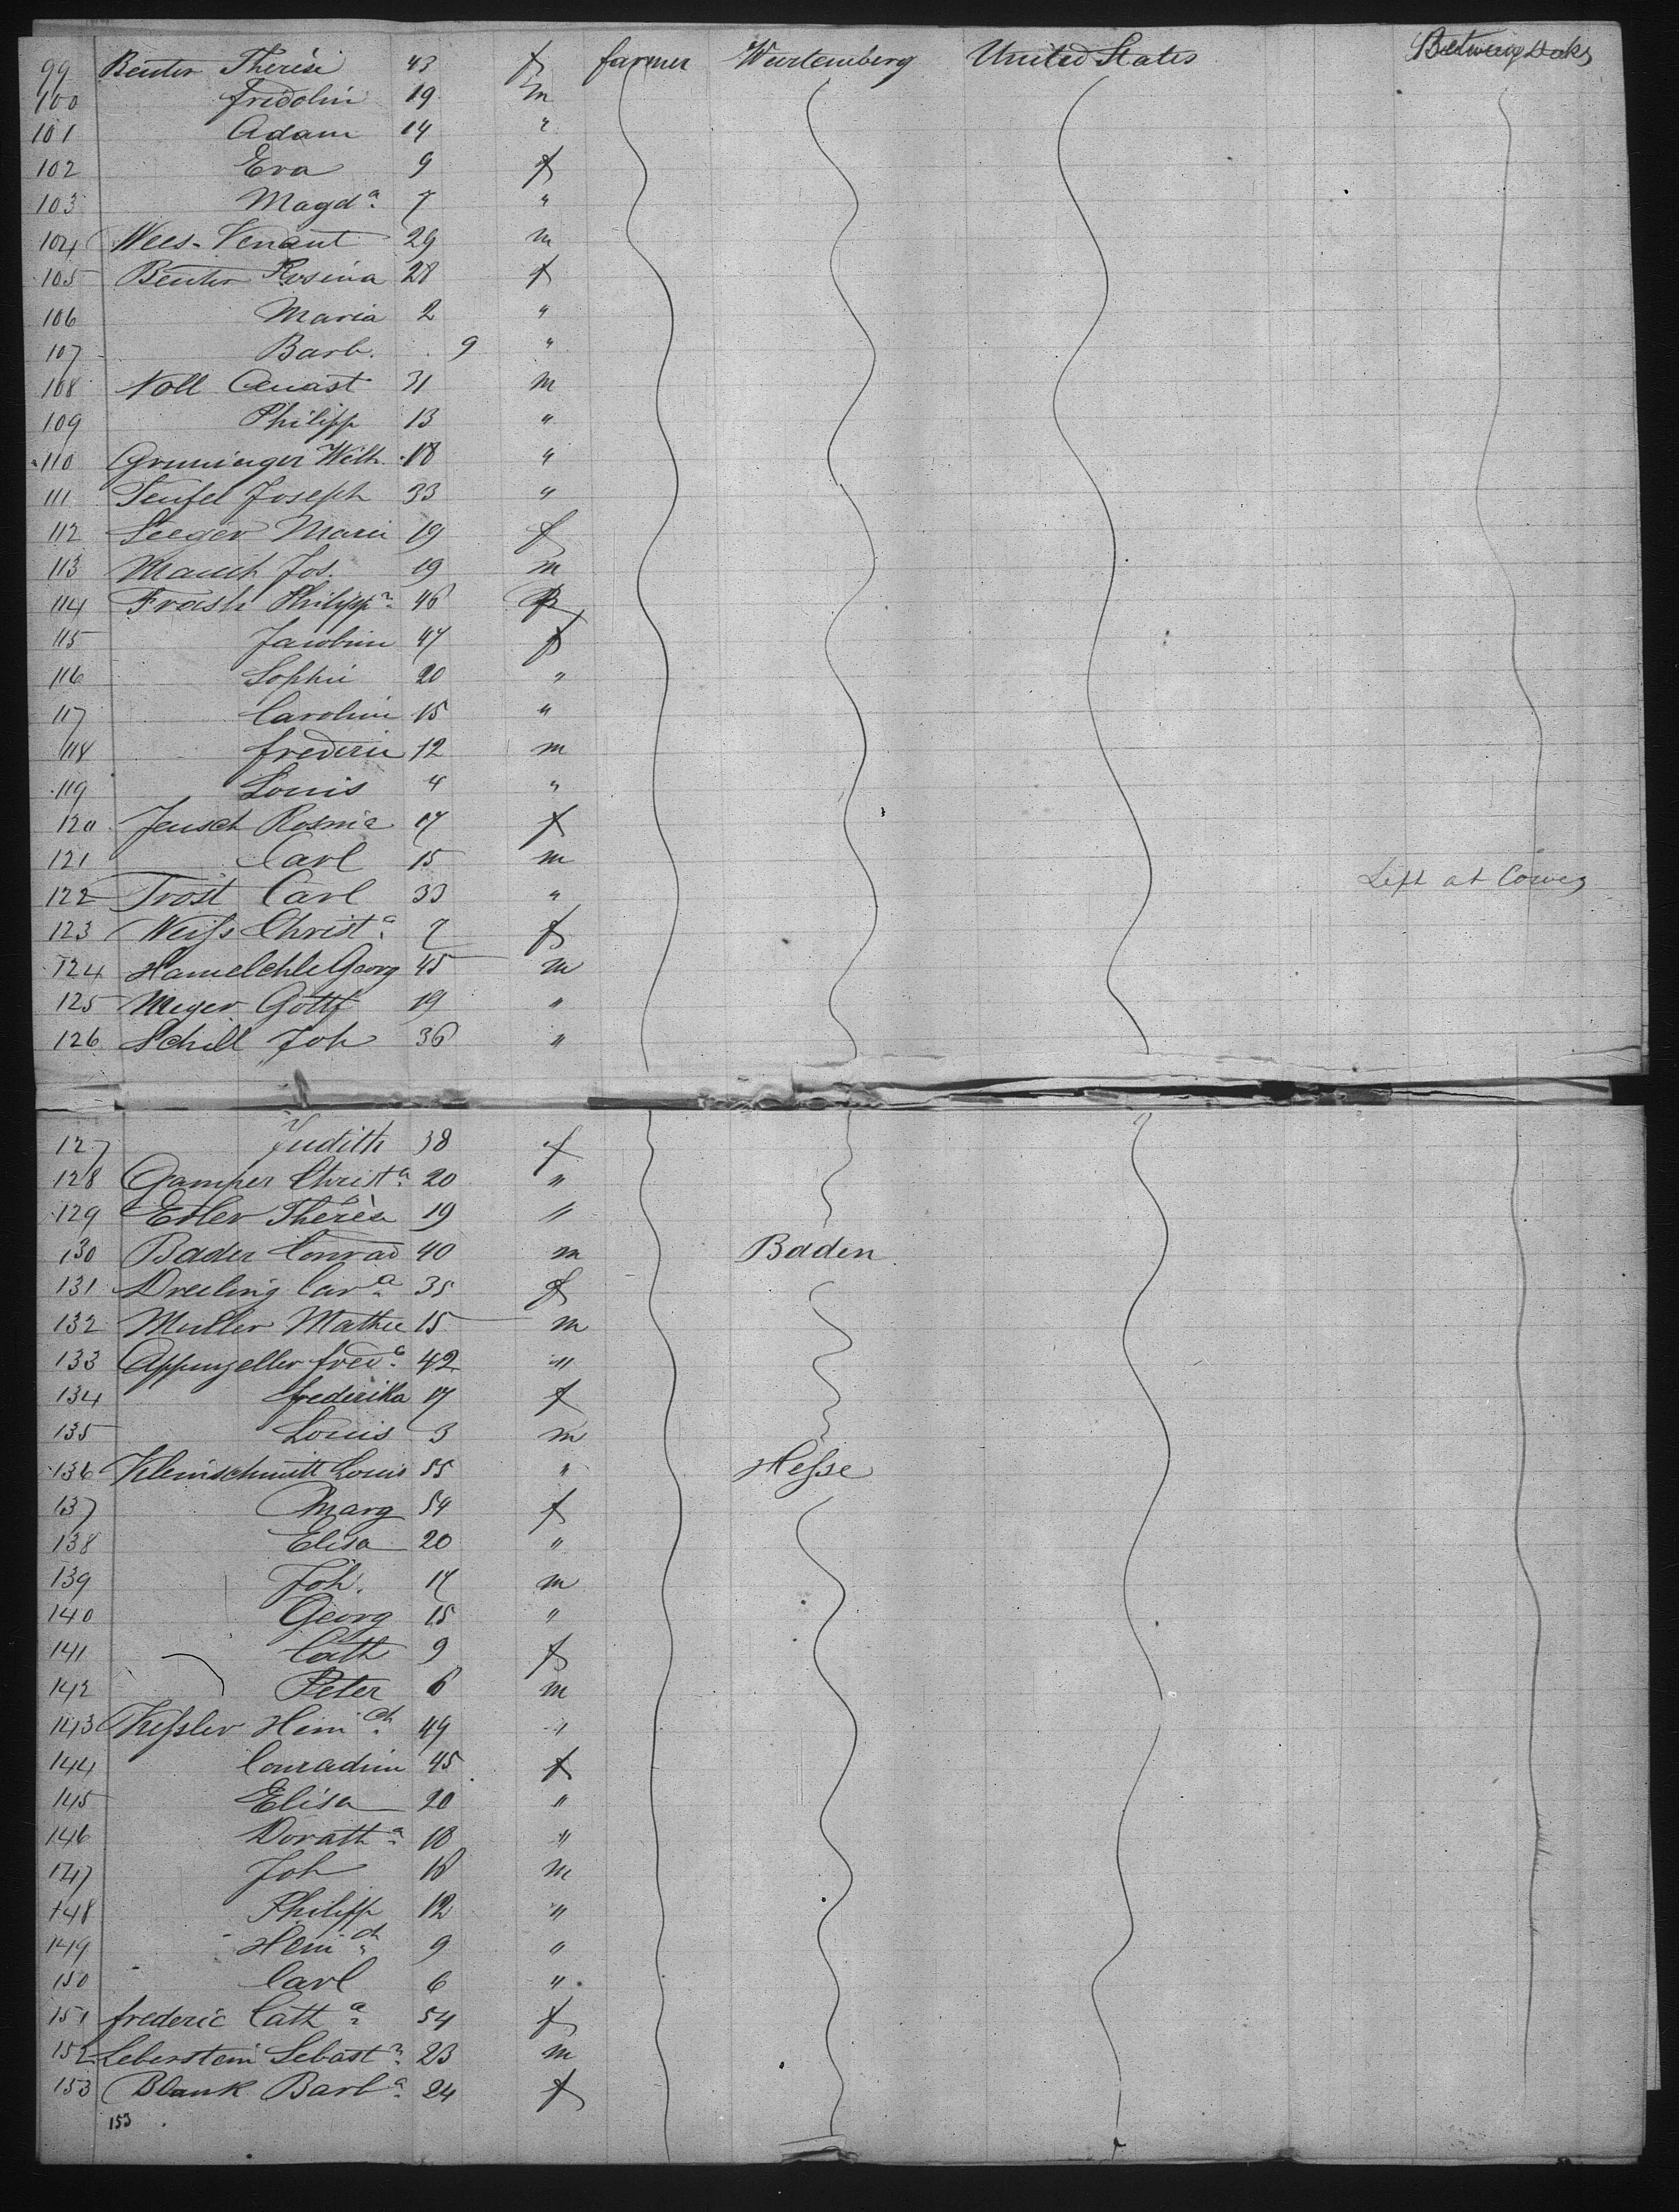 99 Beuter Therese 43 f farmer Wurtemberg United States Between Decks
100 Fredolin 19 m
101 Adam 14 "
102 Eva 9 f
103 Magda 7 "
104 Wees Venant 29 m
105 Beuter Rosina 28 f
106 Maria 2 "
107 Barb. 9 "
108 Noll Anast 31 m
109 Philipp 13 "
110 Gruninger Wilh. 18 "
111 Teufel Joseph 33 "
112 Seeger Marie 19 f
113 Mauch Jos. 19 m
114 Frash Philipp 46
115 Jacobine 47 f
116 Sophie 20 "
117 Caroline 15 "
118 frederic 12 m
119 Louis 4 "
120 Jensch Rosina 17 f
121 Carl 15 m
122 Trost Carl 33 " Left at Cowes
123 Weiss Christa 7 f
124 Georg 45 m
125 Meyer Gottf 19 "
126 Schill Joh 36 "
127 Judith 38 f
128 Gamper Christa 20 "
129 Therèse 19 "
130 Bader Conrad 40 m Baden
131 Dreeling Cara 35 f
132 Muller Mathie 15 m
133 Appenzeller fredc 42 "
134 frederika 17 f
135 Louis 3 m
136 Kleinschmitt Louis 55 " Hesse
137 Marg 54 f
138 Elisa 20 "
139 Joh. 17 m
140 Georg 15 "
141 Cath 9 f
142 Peter 6 m
143 Kessler Heinch 49 "
144 Conradine 45 f
145 Elisa 20 "
146 Doratha 18 "
147 Joh m
148 Philipp 12 "
149 Heinch 9 "
150 Carl 6 "
151 frederic Catha 54 f
152 Leberstein Sebastn 23 m
153 Blank Barba 24 f
153